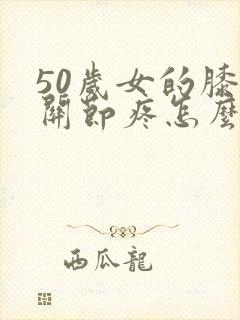 50歲女的膝
關節疼怎麼
西瓜龍